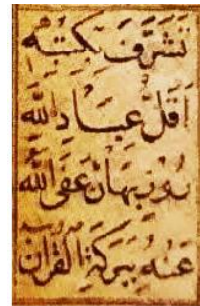 تَشَرَّفَ بِكَتْبِهِ
اَقَلُّ عِبَادِ اللّٰهِ
روزبهان عَفَی اللّٰه
عَنْهُ بِبَرَكَةِ الْقُرْآن